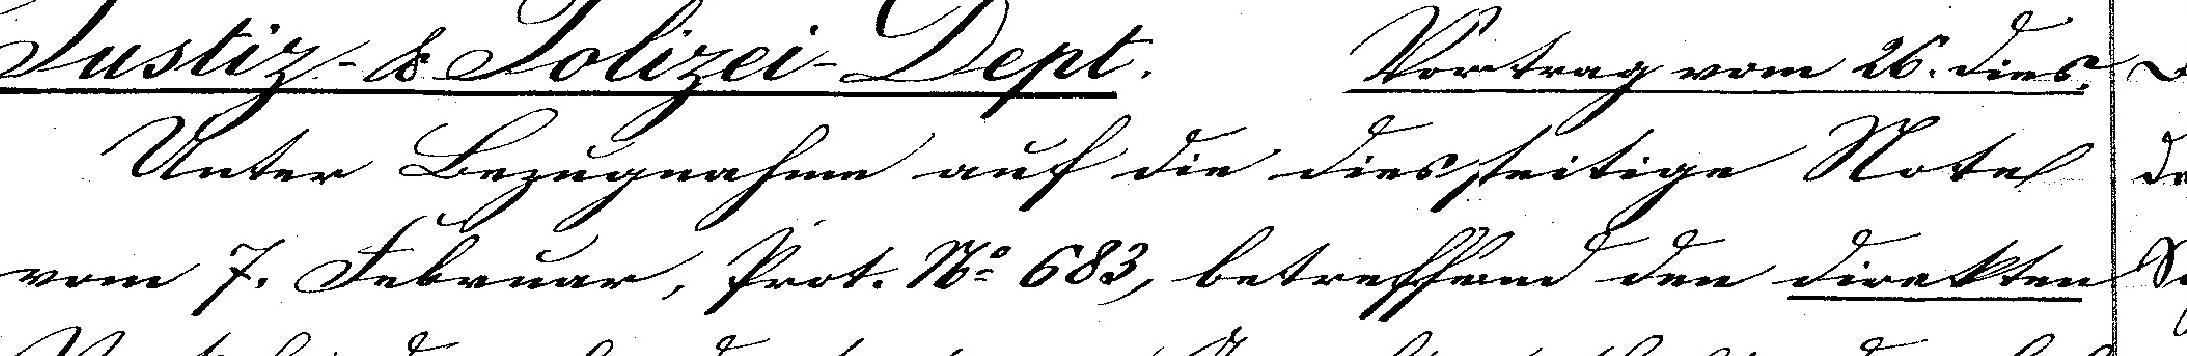 Justiz- & Polizei-Dept. Vortrag vom 26. dies.
Unter Bezugnahme auf die diesseitige Note
vom 7. Februar, Prot. No. 683, betreffend den direkten